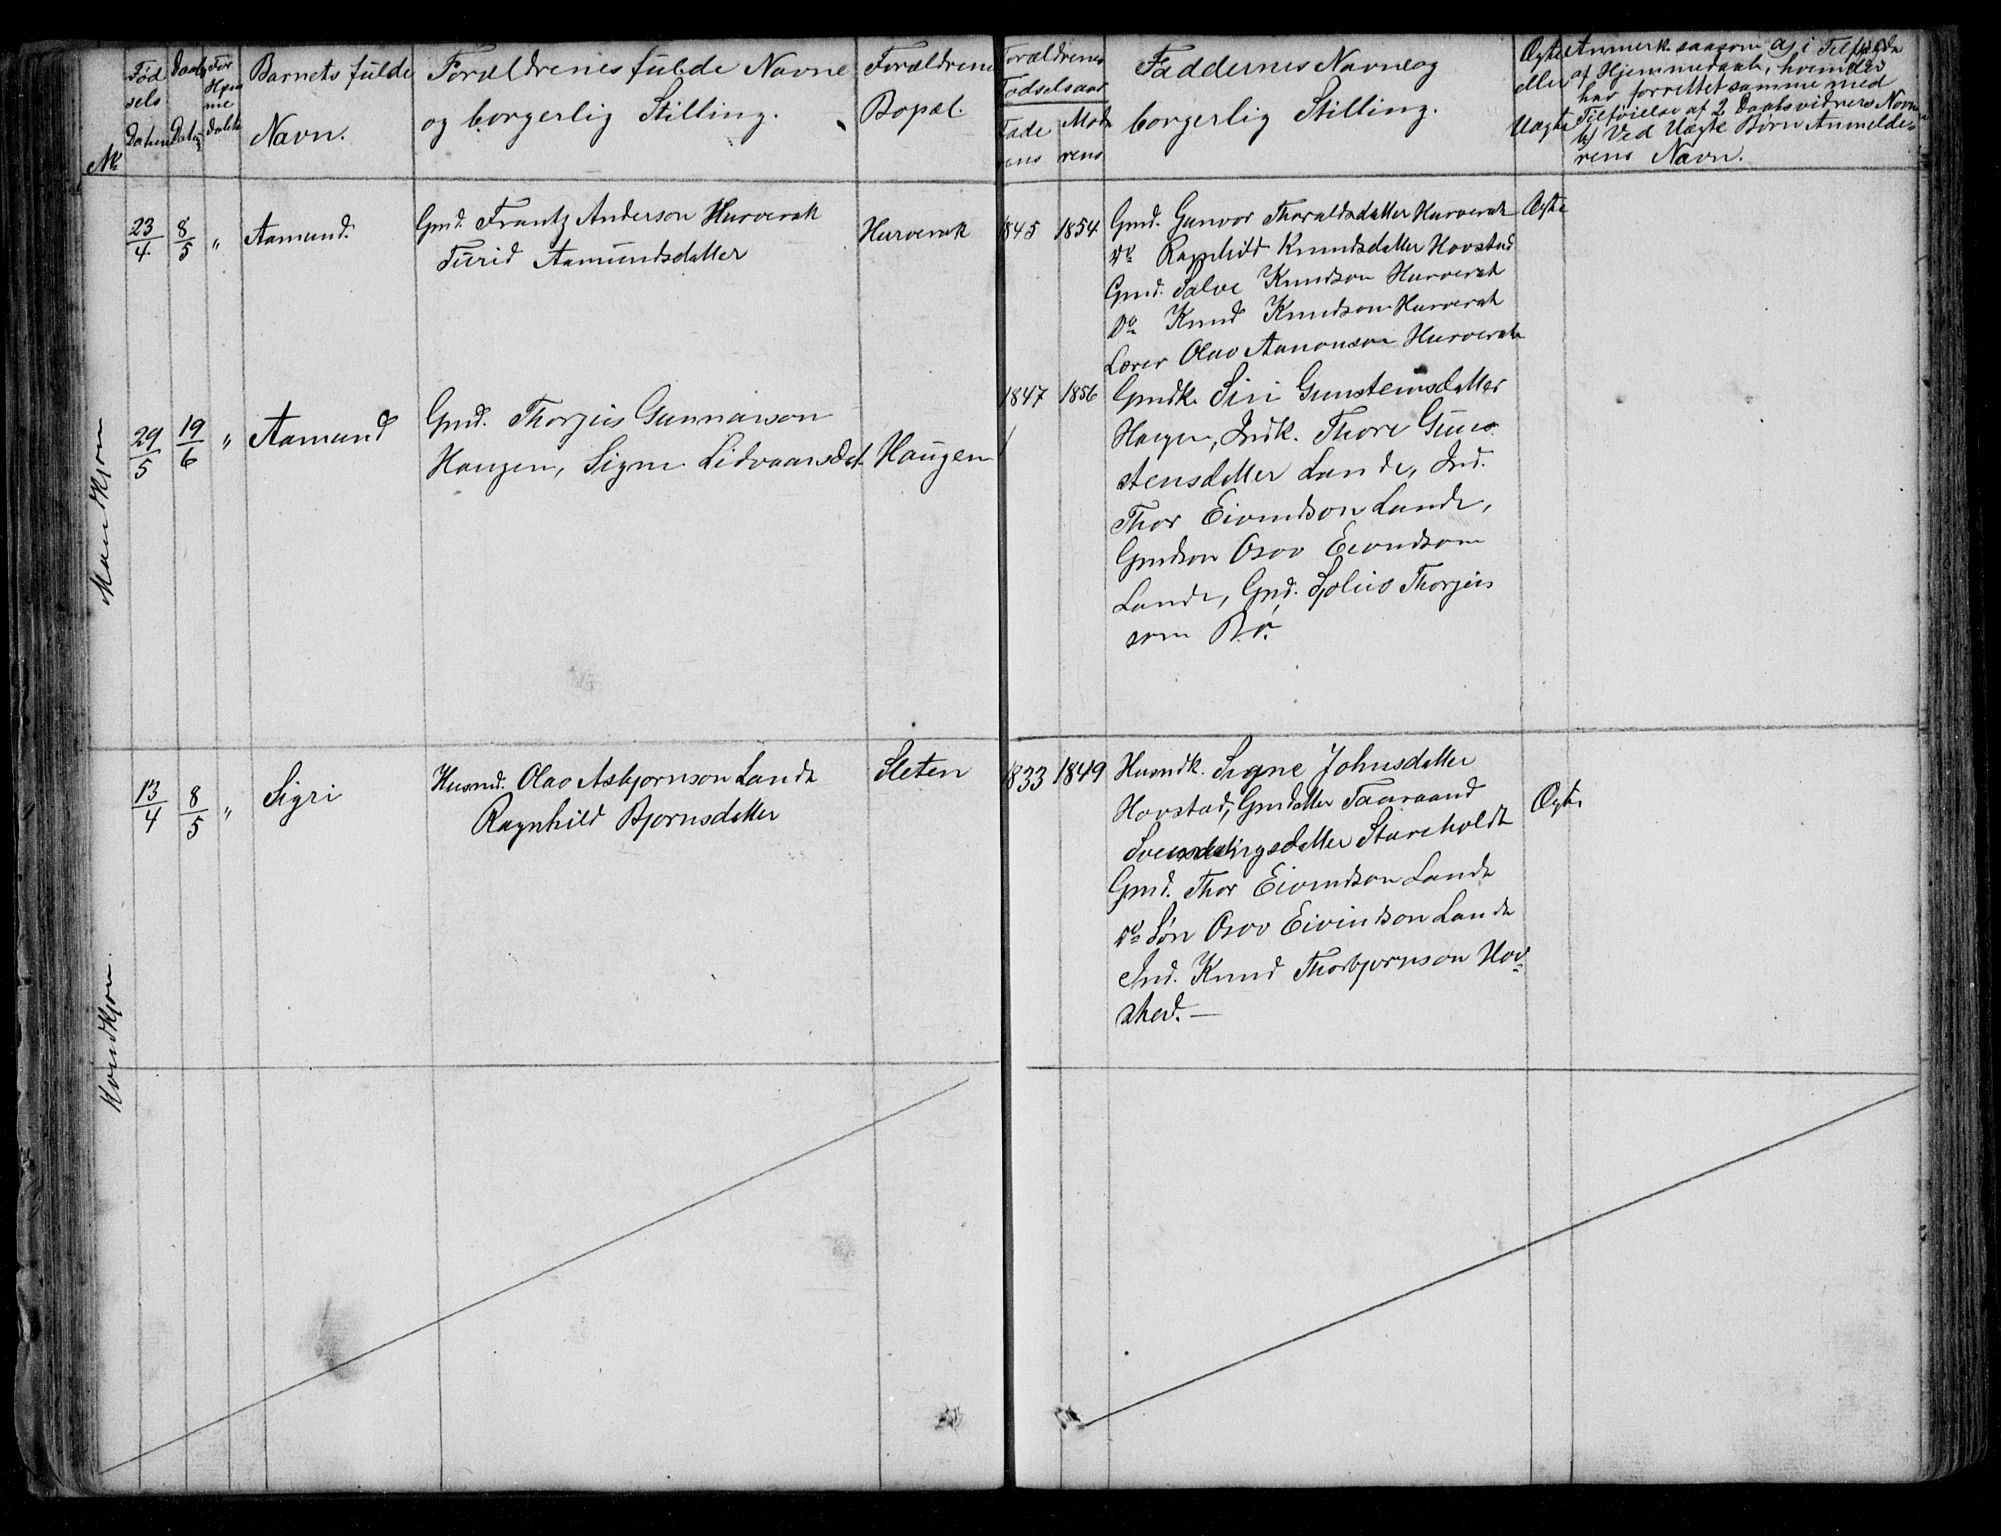 No
Fødsels Datum
Daabs Datum
For Hjemmedaab
Barnets fulde Navn.
Forældrenes fulde Navne
og borgerlig Stilling.
Forældrenes
Bopæl.
Forældrenes
Fødselsaar
Faderens
Moderens
Faddernes Navne og
borgerlig Stilling.
Ægte
eller
Uægte
Anmerk. saasom a) i Tilfælde
af Hjemmedaab, hvem der
har forrettet samme med
Tilføielse af 2 Daabsvidners Navn
b) Ved Uægte Børn Anmelde-
rens Navn.
Mandkjøn
23/4 8/5 " Aamund.
Gmd. Frantz Anderson Hurverak
Turid Aamundsdatter
Hurverak
1845 1854
Gmd. Gunvor Thoraldsdatter Hurverak
Do Ragnhild Knudsdatter Hovstad
Gmd. Salve Knudson Hurverak
Do Knud Knudson Hurverak
Lærer Olav Aanonson Hurverak
Ægte
29/5 19/6 " Aamund
Gmd. Thorjus Gunnarson
Haugen, Signe Lidvaarsdat.
Haugen
1847 1856
Gmdk. Siri Gunsteinsdatter
Haugen, Indk. Thore Gun-
stensdatter Lande, Ind.
Thor Eivindson Lande,
Gmdson Osov Eivindson
Lande, Gmd. Sjølius Thorjus
son Bø.
Kvindkjøn.
13/4 8/5 " Sigri
Husmd. Olav Asbjørnson Lande
Ragnhild Bjørnsdatter
Sleten
1833 1849
Husmdk. Signe Johnsdatter
Hovstad, Gmdatter Taaraand
Stareholdt
Gmd. Thor Eivindson Lande
Do Søn Osov Eivindson Lande
Ind. Knud Thorbjørnson Hov-
sted. —
Ægte